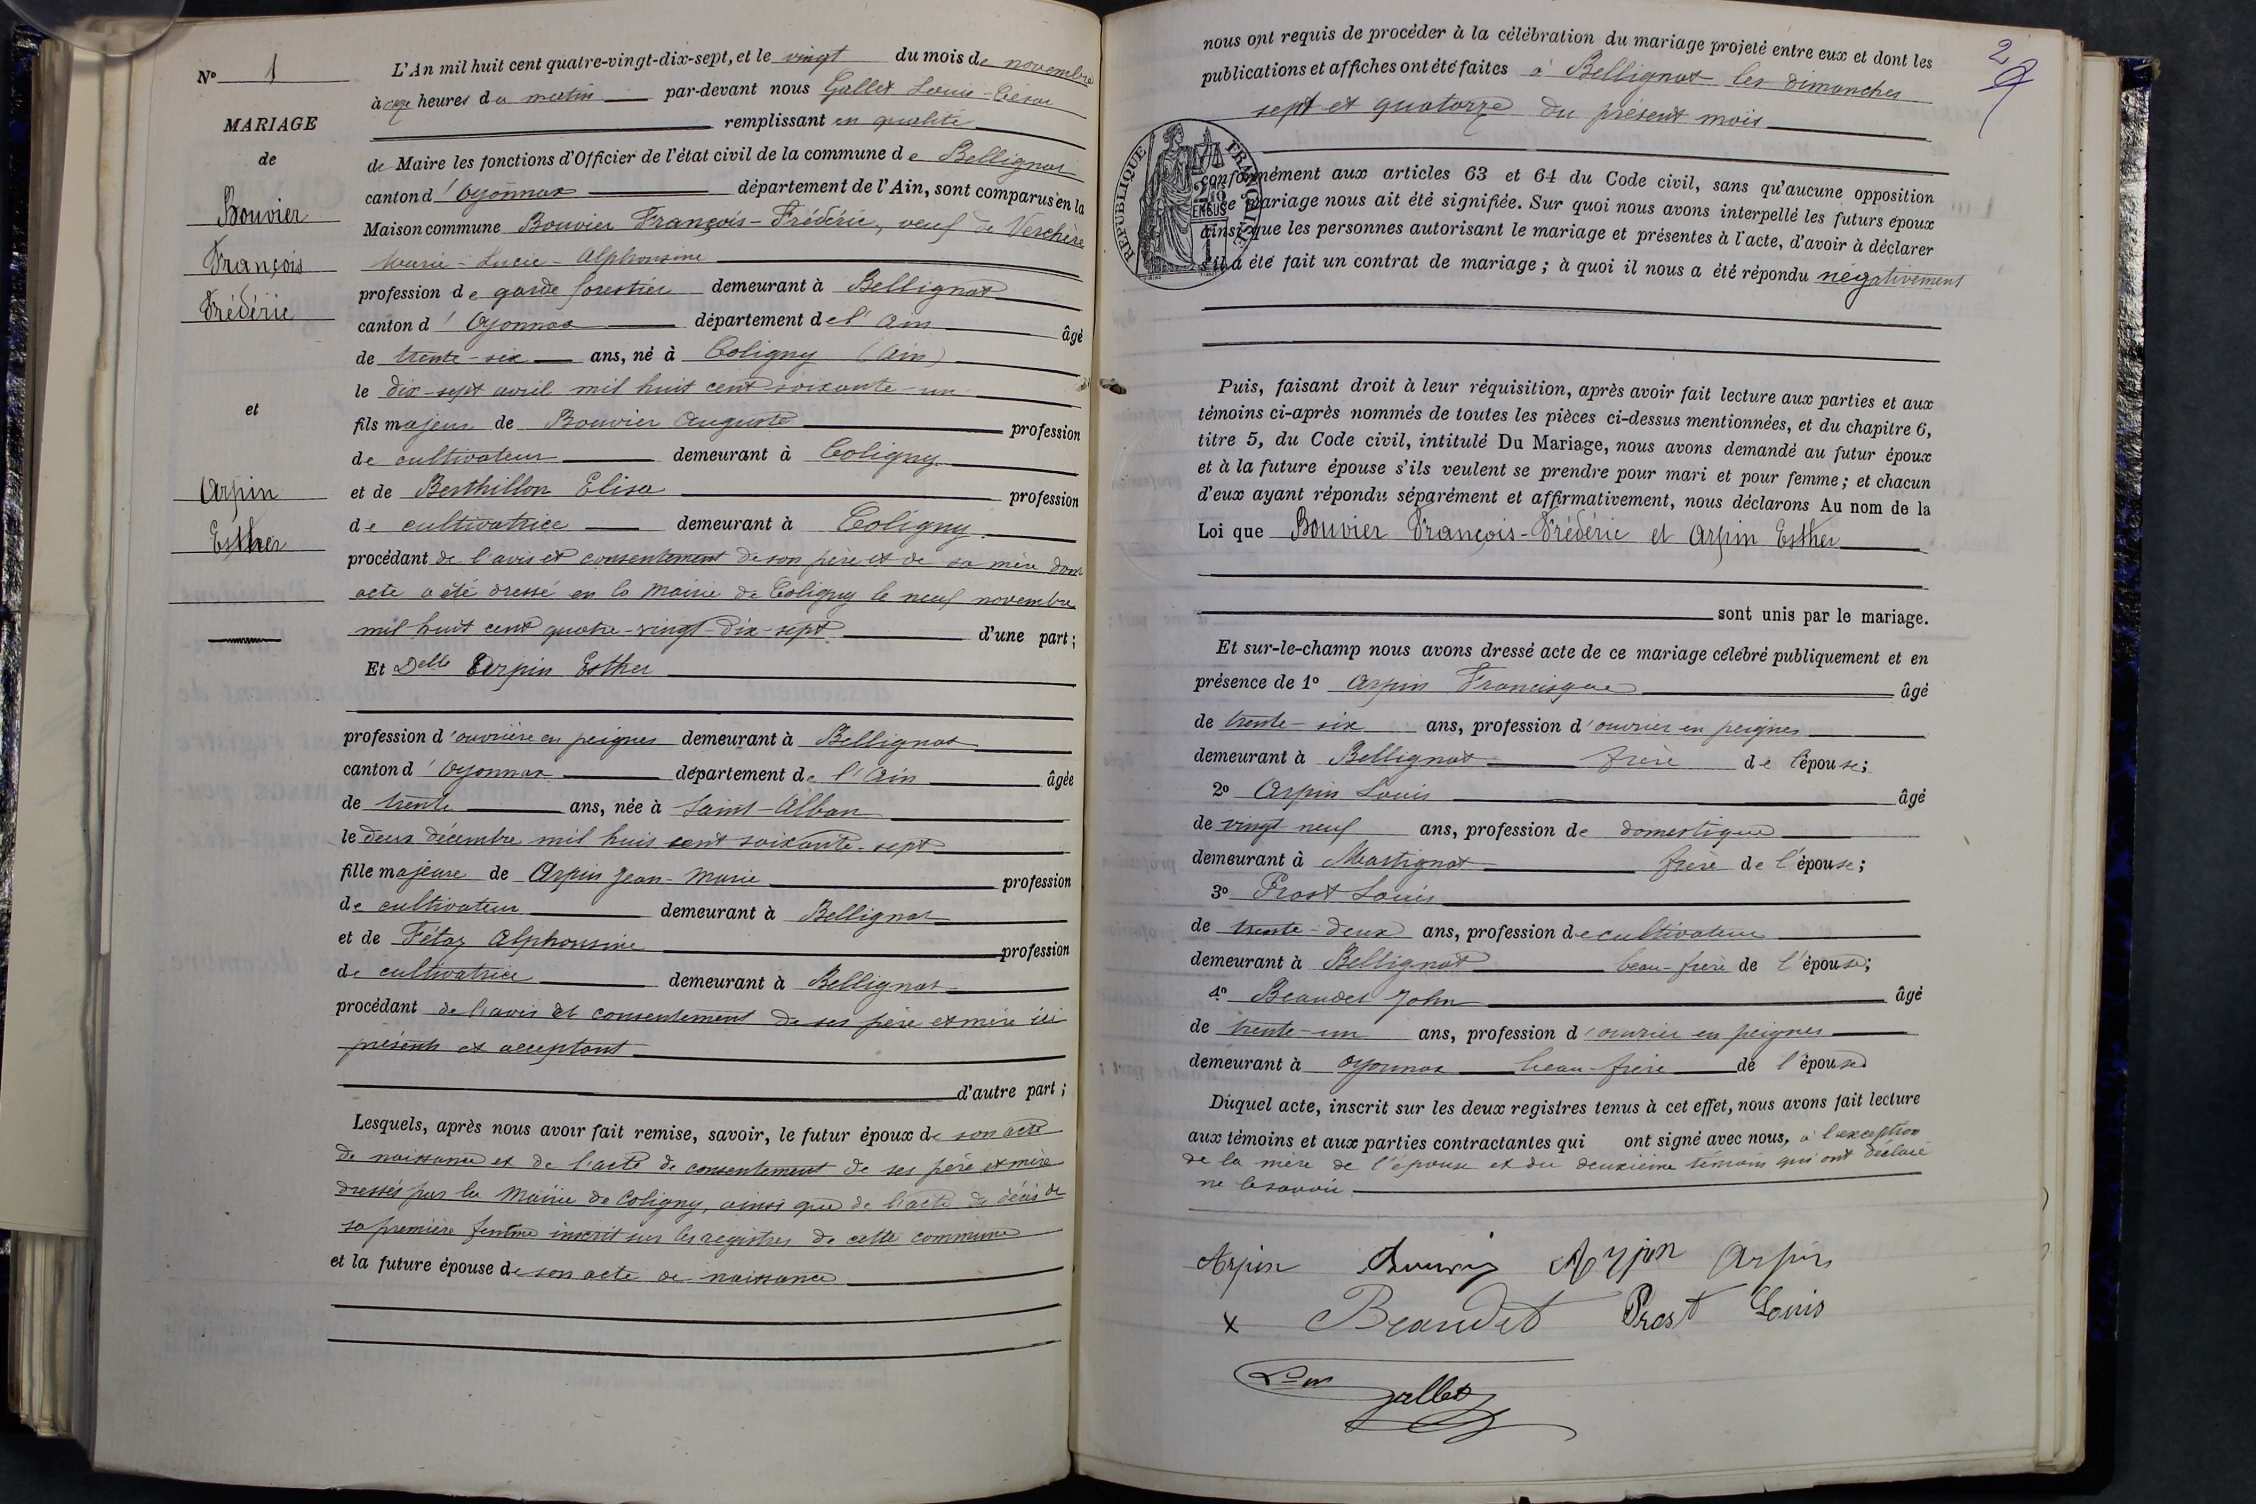 N° 1
MARIAGE
de
Bouvier
François
Frédéric
et
Arpin
Esther
L'An mil huit cent quatre-vingt-dix-sept, et le vingt du mois de novembre
à onze heures du matin par-devant nous Gallet Louis-César
remplissant en qualité
de Maire les fonctions d'Officier de l'état civil de la commune de Bellignat
canton d'Oyonnax département de l'Ain, sont comparus en la
Maison commune Bouvier François-Frédéric, veuf de Verchère
Marie-Lucie-Alphonsine
profession de garde forestier demeurant à Bellignat
canton d'Oyonnax département de l'Ain âgé
de trente-six ans, né à Coligny (Ain)
le dix-sept avril mil huit cent soixante-un
fils majeur de Bouvier Auguste profession
de cultivateur demeurant à Coligny
et de Berthillon Elisa profession
de cultivatrice demeurant à Coligny.
procédant de l'avis et consentement de son père et de sa mère dont
acte a été dressé en la Mairie de Coligny le neuf novembre
mil huit cent quatre-vingt-dix-sept d'une part ;
Et Delle Arpin Esther
profession d'ouvrière en peignes demeurant à Bellignat
canton d'Oyonnax département de l'Ain âgée
de trente ans, née à Saint-Alban
le deux décembre mil huit cent soixante-sept
fille majeure de Arpin Jean-Marie profession
de cultivateur demeurant à Bellignat
et de Fétaz Alphonsine profession
de cultivatrice demeurant à Bellignat
procédant de l'avis et consentement de ses père et mère ici
présents et acceptant
d'autre part ;
Lesquels, après nous avoir fait remise, savoir, le futur époux de son acte
de naissance et de l'acte de consentement de ses père et mère
dressés par la Mairie de Coligny, ainsi que de l'acte de décès de
sa première femme inscrit sur les registres de cette commune
et la future épouse de son acte de naissance
2
nous ont requis de procéder à la célébration du mariage projeté entre eux et dont les
publications et affiches ont été faites à Bellignat les dimanches
sept et quatorze du présent mois
RÉPUBLIQUE FRANÇAISE
conformément aux articles 63 et 64 du Code civil, sans qu'aucune opposition
ce mariage nous ait été signifiée. Sur quoi nous avons interpellé les futurs époux
ainsi que les personnes autorisant le mariage et présentes à l'acte, d'avoir à déclarer
s'il a été fait un contrat de mariage ; à quoi il nous a été répondu négativement
Puis, faisant droit à leur réquisition, après avoir fait lecture aux parties et aux
témoins ci-après nommés de toutes les pièces ci-dessus mentionnées, et du chapitre 6,
titre 5, du Code civil, intitulé Du Mariage, nous avons demandé au futur époux
et à la future épouse s'ils veulent se prendre pour mari et pour femme ; et chacun
d'eux ayant répondu séparément et affirmativement, nous déclarons Au nom de la
Loi que Bouvier François-Frédéric et Arpin Esther
sont unis par le mariage.
Et sur-le-champ nous avons dressé acte de ce mariage célébré publiquement et en
présence de 1° Arpin Francisque âgé
de trente-six ans, profession d'ouvrier en peignes
demeurant à Bellignat frère de l'épouse ;
2° Arpin Louis âgé
de vingt neuf ans, profession de domestique
demeurant à Martignat frère de l'épouse ;
3° Prost Louis
de trente-deux ans, profession de cultivateur
demeurant à Bellignat beau-frère de l'épouse ;
4° Beaudet John âgé
de trente-un ans, profession d'ouvrier en peignes
demeurant à Oyonnax beau-frère de l'épouse
Duquel acte, inscrit sur les deux registres tenus à cet effet, nous avons fait lecture
aux témoins et aux parties contractantes qui ont signé avec nous, à l'exception
de la mère de l'épouse et du deuxième témoin qui ont déclaré
ne le savoir
Arpin Bouvier Arpin Arpin
x Beaudet Prost Louis
Gallet